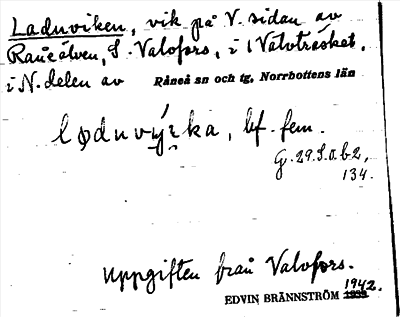 Laduviken, vik på V. sidan av
Råneälven, S. Valofors, i 1 Valvträsket,
i N. delen av Råneå sn och tg, Norrbottens län
laduvýıka, bf. fem.
G. 29.S.o.b2,
134.
Uppgiften från Valofors.
1942.
EDVIN BRÄNNSTRÖM 1939.